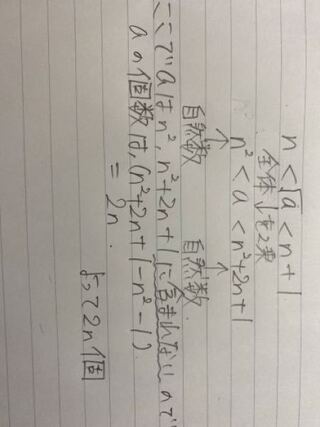 n < √a < n+1
全体を2乗
n² < a < n²+2n+1
↑ ↑
自然数 自然数
ここでaはn², n²+2n+1に含まれないので
aの個数は, (n²+2n+1-n²-1)
= 2n.
よって2n個